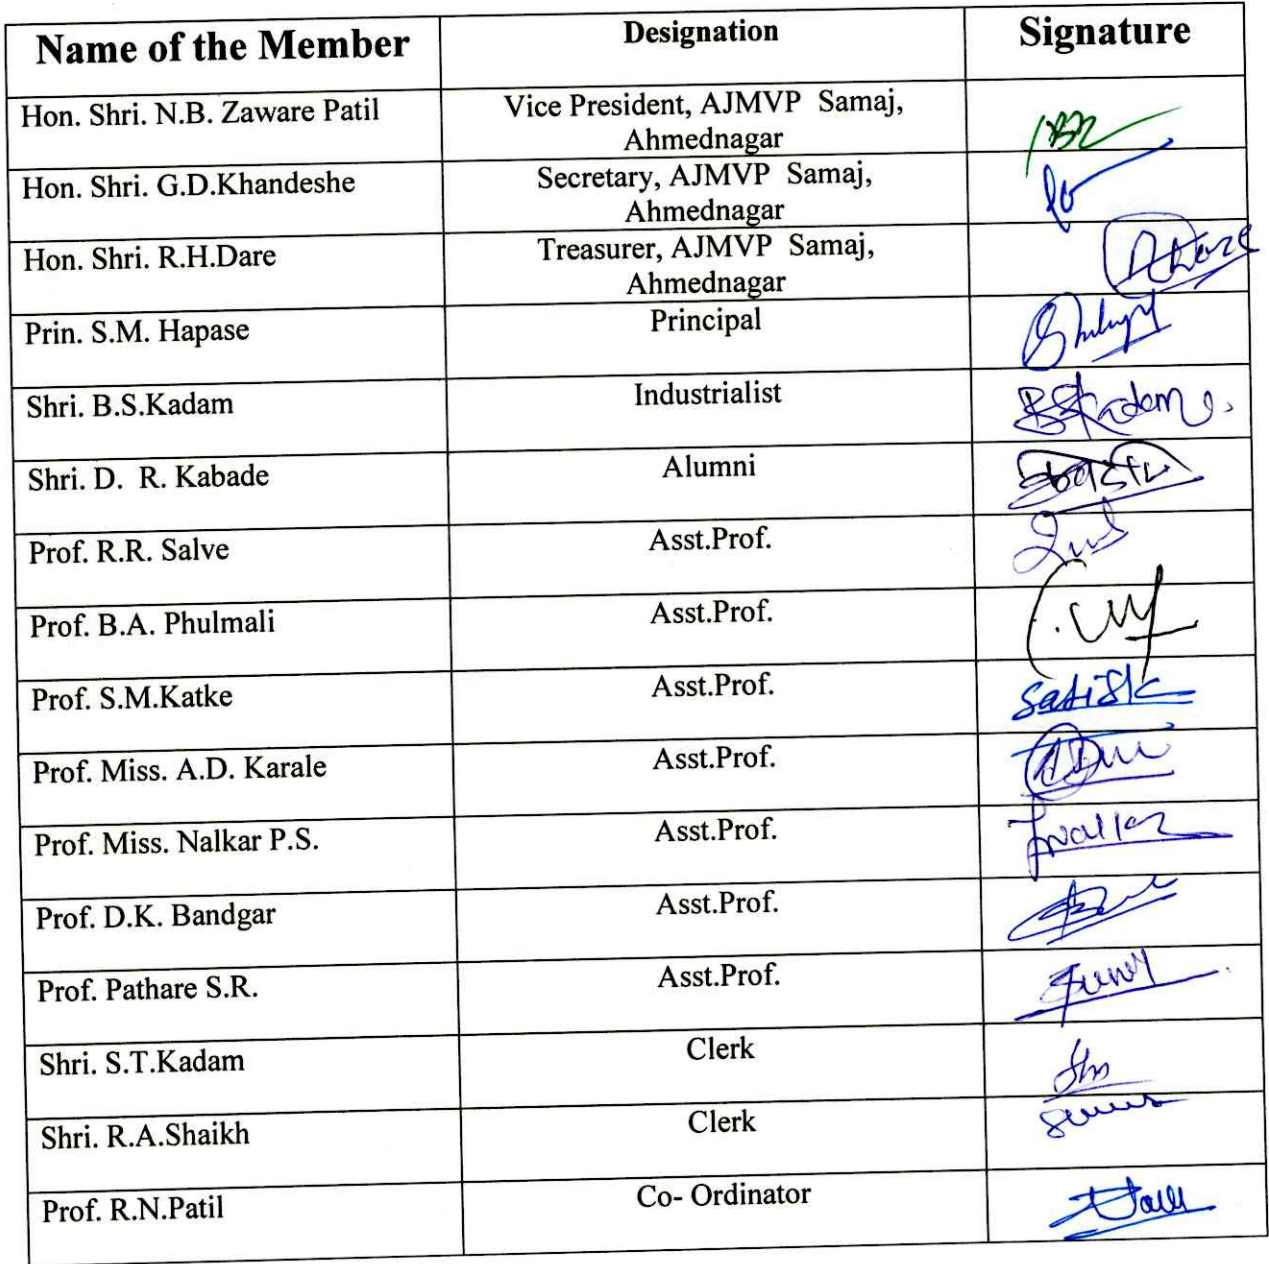 Name of the Member Designation Signature
Hon. Shri. N.B. Zaware Patil Vice President, AJMVP Samaj,
Ahmednagar
Hon. Shri. G.D.Khandeshe Secretary, AJMVP Samaj,
Ahmednagar
Hon. Shri. R.H.Dare Treasurer, AJMVP Samaj,
Ahmednagar
Prin. S.M. Hapase Principal
Shri. B.S.Kadam Industrialist
Shri. D. R. Kabade Alumni
Prof. R.R. Salve Asst.Prof.
Prof. B.A. Phulmali Asst.Prof.
Prof. S.M.Katke Asst.Prof.
Prof. Miss. A.D. Karale Asst.Prof.
Prof. Miss. Nalkar P.S. Asst.Prof.
Prof. D.K. Bandgar Asst.Prof.
Prof. Pathare S.R. Asst.Prof.
Shri. S.T.Kadam Clerk
Shri. R.A.Shaikh Clerk
Prof. R.N.Patil Co- Ordinator